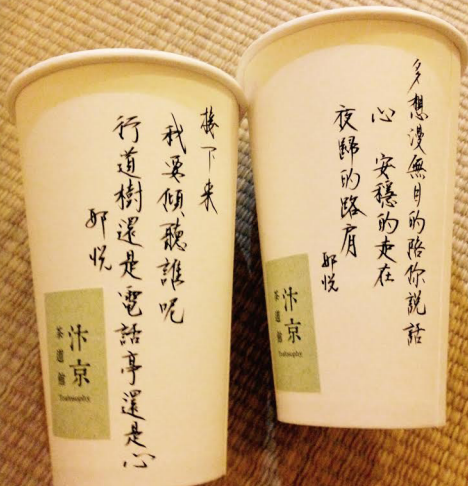 接下来
我要傾聽誰呢
行道樹還是電話亭還是心
邢悅
汴京
茶道館
Tealosophy
多想漫無目的陪你說話
心 安穩的走在
夜歸的路肩
邢悅
汴京
茶道館
Tealosophy